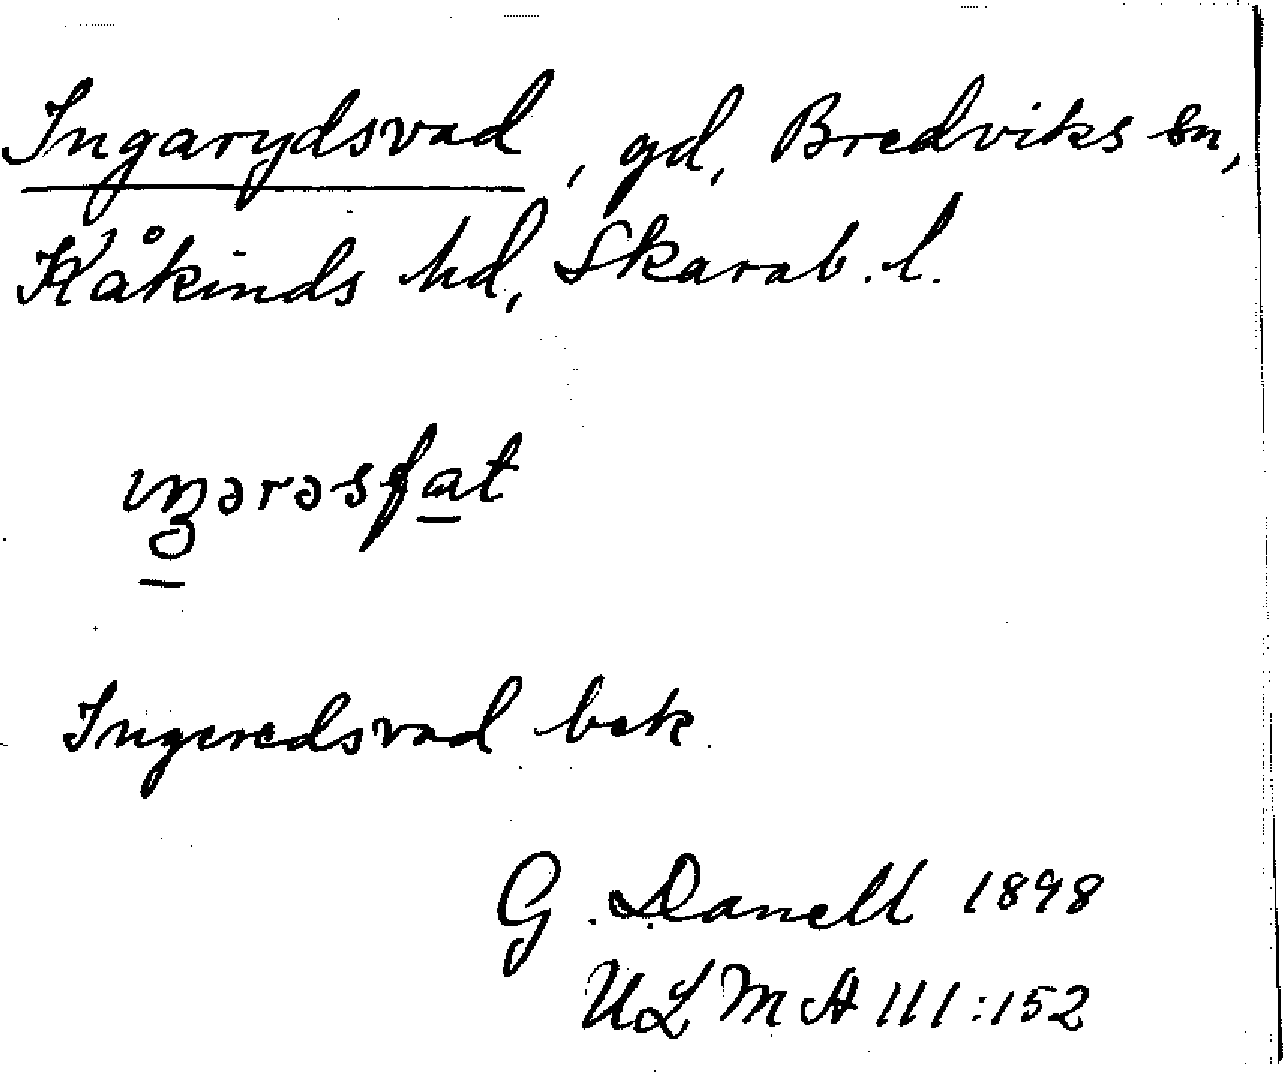 Ingarydsvad, gd, Bredviks sn,
Kåkinds hd, Skarab. l.
ıŋərəsfat
Ingeredsvad bek.
G. Danell 1898
ULMA 111:152